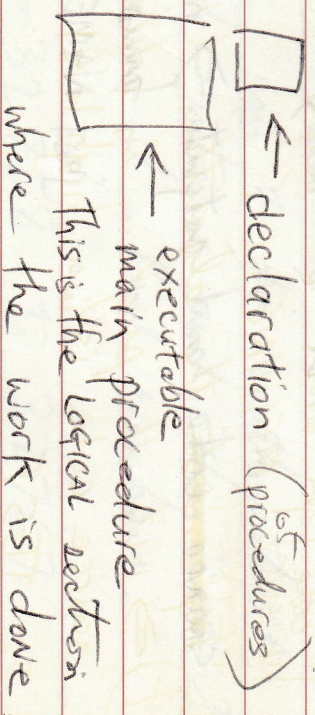 ← declaration (of procedures)
← executable
main procedure
This is the LOGICAL section
where the work is done